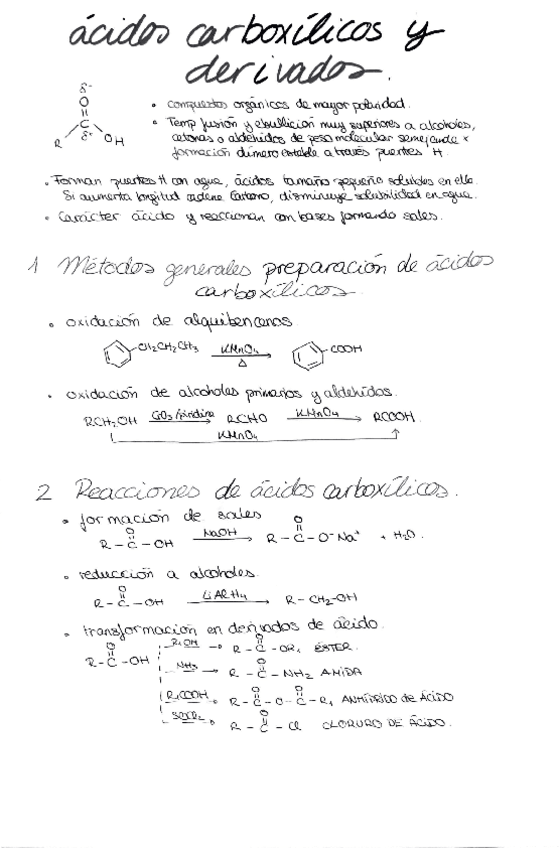 ácidos carboxílicos y
derivados.
δ-
O
C
δ+
R OH
• compuestos orgánicos de mayor polaridad.
• Temp fusión y ebullición muy superiores a alcoholes,
cetonas o aldehídos de peso molecular semejante x
formación dímero estable a través puentes H.
• Forman puentes H con agua, ácidos tamaño pequeño solubles en ella.
Si aumenta longitud cadena carbono, disminuye solubilidad en agua.
• Carácter ácido y reaccionan con bases formando sales.
1 Métodos generales preparación de ácidos
carboxílicos
• oxidación de alquilbencenos
CH2CH2CH3 KMnO4 Δ COOH
• oxidación de alcoholes primarios y aldehídos.
RCH2OH CrO3/piridina RCHO KMnO4 RCOOH
KMnO4
2 Reacciones de ácidos carboxílicos.
• formación de sales
R-C(=O)-OH NaOH → R-C(=O)-O-Na+ + H2O.
• reducción a alcoholes.
R-C(=O)-OH LiAlH4 → R-CH2-OH
• transformación en derivados de ácido.
R-C(=O)-OH
R1OH → R-C(=O)-OR1 ÉSTER.
NH3 → R-C(=O)-NH2 AMIDA
R1COOH → R-C(=O)-O-C(=O)-R1 ANHÍDRIDO DE ÁCIDO
SOCl2 → R-C(=O)-Cl CLORURO DE ÁCIDO.